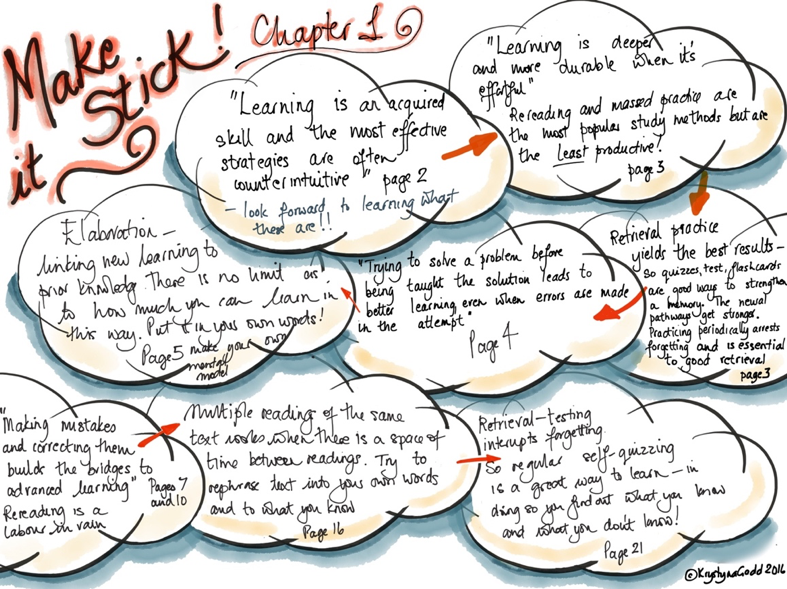 Make
it Stick!
Chapter 1
"Learning is an acquired
skill and the most effective
strategies are often
counterintuitive" page 2
- look forward to learning what
there are!!
"Learning is deeper
and more durable when it's
effortful"
Rereading and massed practice are
the most popular study methods but are
the Least productive!
page 3
Retrieval practice
yields the best results -
so quizzes, test, flashcards
are good way to strengthen
a memory. The neural
pathways get stronger.
Practicing periodically arrests
forgetting and is essential
to good retrieval
page 3
"Trying to solve a problem before
being taught the solution leads to
better learning even when errors are made
in the attempt"
Page 4
Elaboration -
linking new learning to
prior knowledge There is no limit as
to how much you can learn in
this way. Put it in your own words!
Page 5 make your own
model
"Making mistakes
and correcting them
builds the bridges to
advanced learning"
Pages 7
and 10
Rereading is a
labour in vain
Multiple readings of the same
text works when there is a space of
time between readings. Try to
rephrase text into your own words
and to what you know
Page 16
Retrieval - testing
interupts forgetting.
So regular self-quizzing
is a great way to learn - in
doing so you find out what you know
and what you don't know!
Page 21
©KrystynaGadd 2016